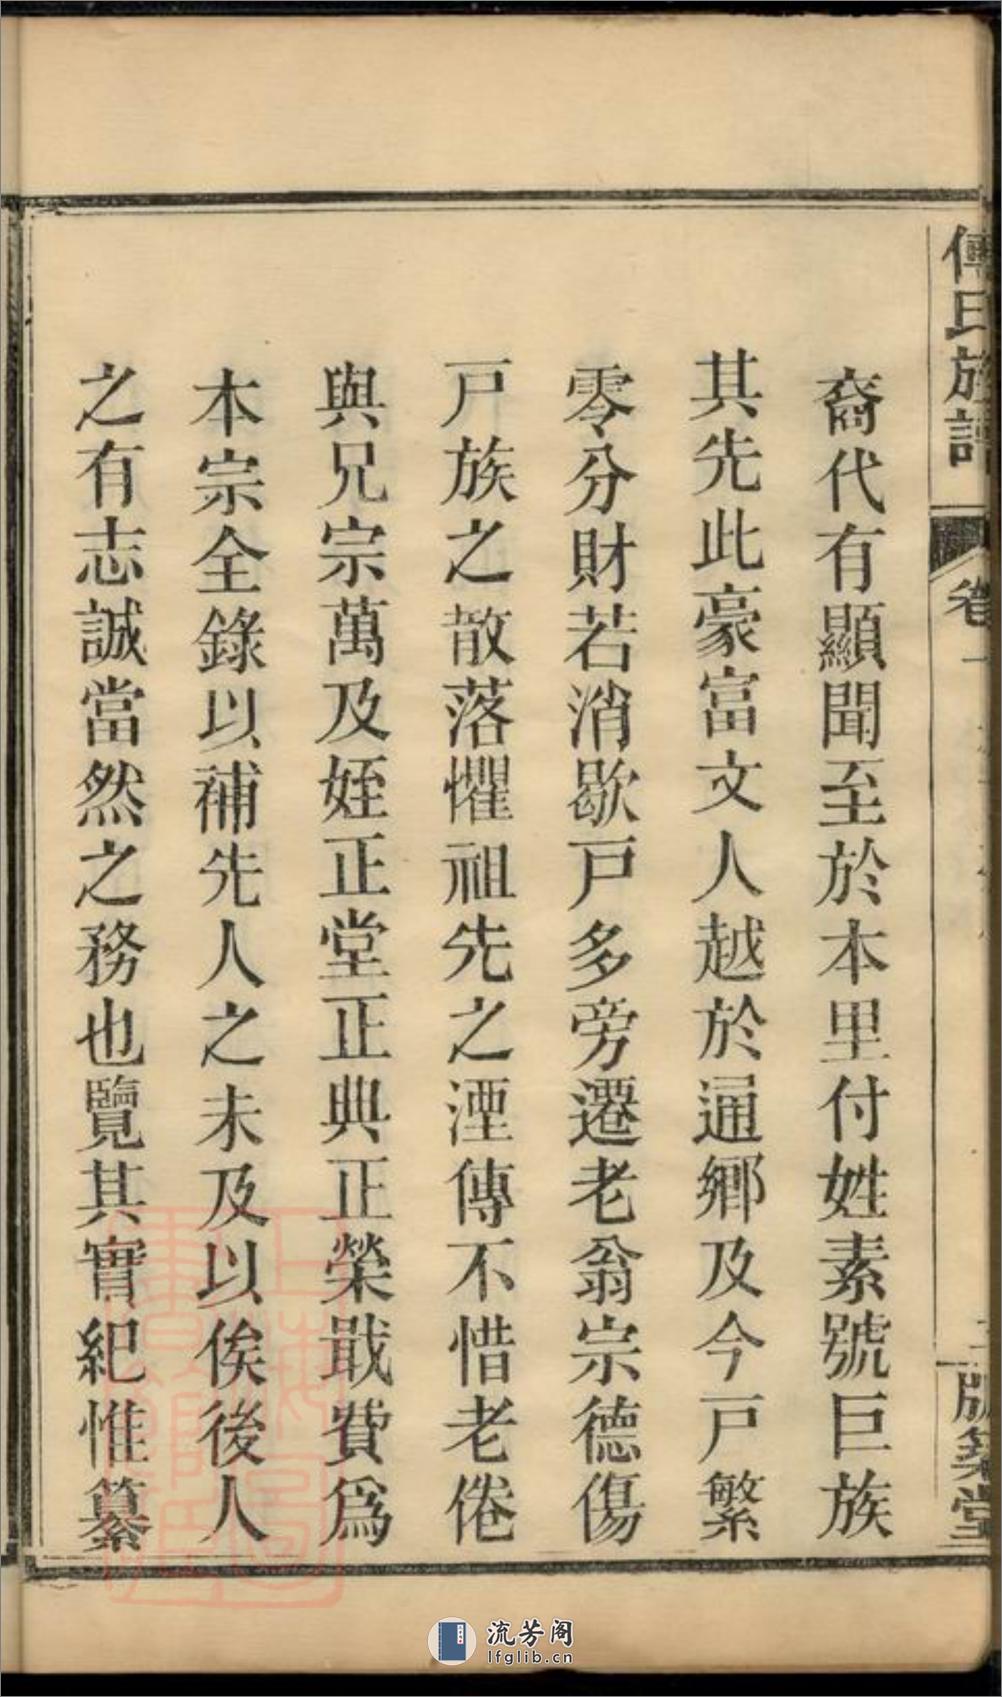 傅氏族譜
卷一
版築堂
裔代有顯聞至於本里付姓素號巨族
其先此豪富文人越於通鄉及今戸繁
零分財若消歇戸多旁遷老翁宗德傷
戸族之散落懼祖先之湮傳不惜老倦
與兄宗萬及姪正堂正典正榮戢費爲
本宗全錄以補先人之未及以俟後人
之有志誠當然之務也覽其實紀惟纂
流芳阁
lfglib.cn